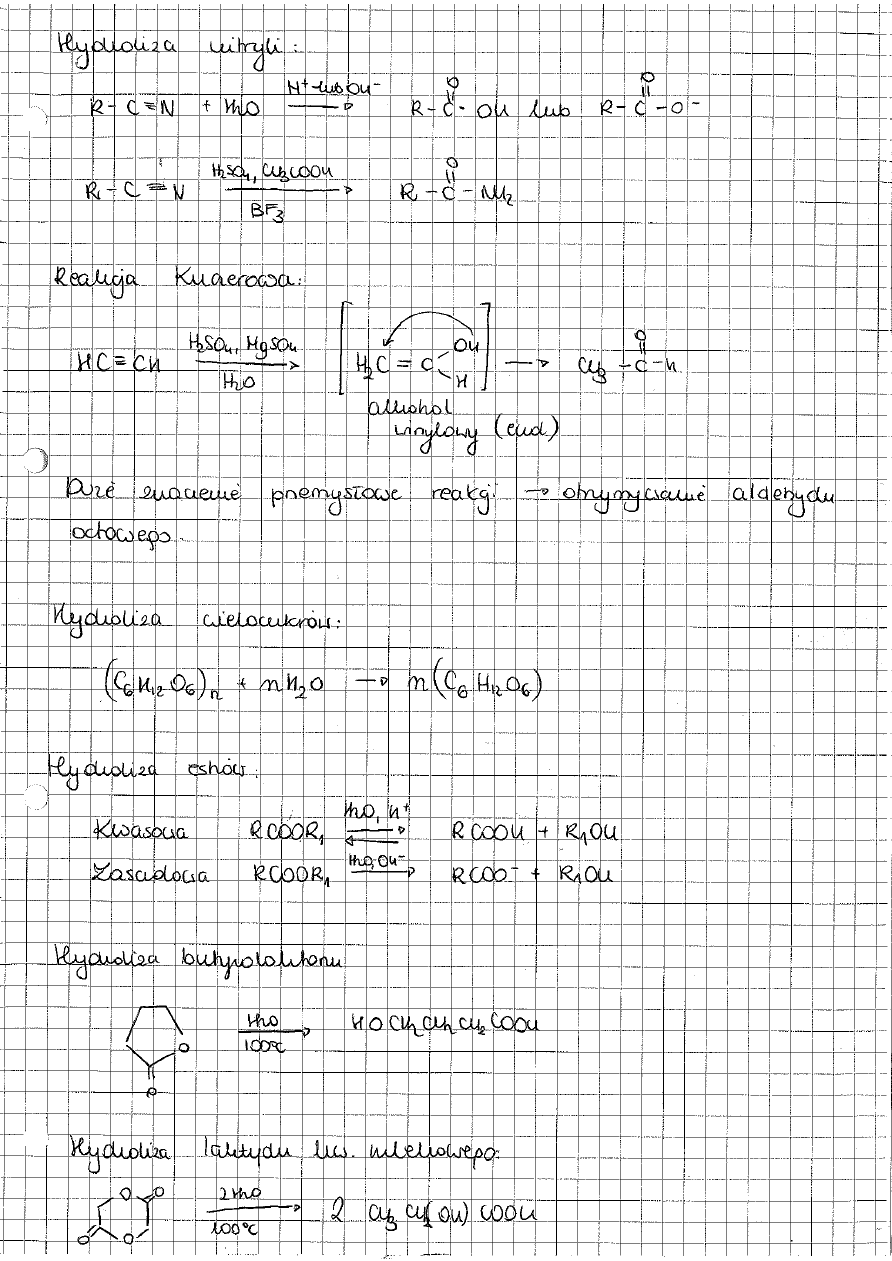 Hydroliza nitryli:
H⁺ lub OH⁻
R-C≡N + H₂O → R-C(=O)-OH lub R-C(=O)-O⁻
H₂SO₄, CH₃COOH
R-C≡N → R-C(=O)-NH₂
BF₃
Reakcja Kuczerowa:
H₂SO₄, HgSO₄
HC≡CH → [H₂C=C(OH)H] → CH₃-C(=O)-H
H₂O
alkohol
winylowy (enol)
Duże znaczenie przemysłowe reakcji → otrzymywanie aldehydu
octowego.
Hydroliza wielocukrów:
(C₆H₁₂O₆)n + nH₂O → n(C₆H₁₂O₆)
Hydroliza estrów:
H₂O, H⁺
Kwasowa RCOOR₁ ⇌ RCOOH + R₁OH
H₂O, OH⁻
Zasadowa RCOOR₁ → RCOO⁻ + R₁OH
Hydroliza butyrolaktonu
O
O
H₂O
→ HOCH₂CH₂CH₂COOH
100°C
Hydroliza laktydu kw. mlekowego:
O O
O O
2H₂O
→ 2 CH₃CH(OH)COOH
100°C